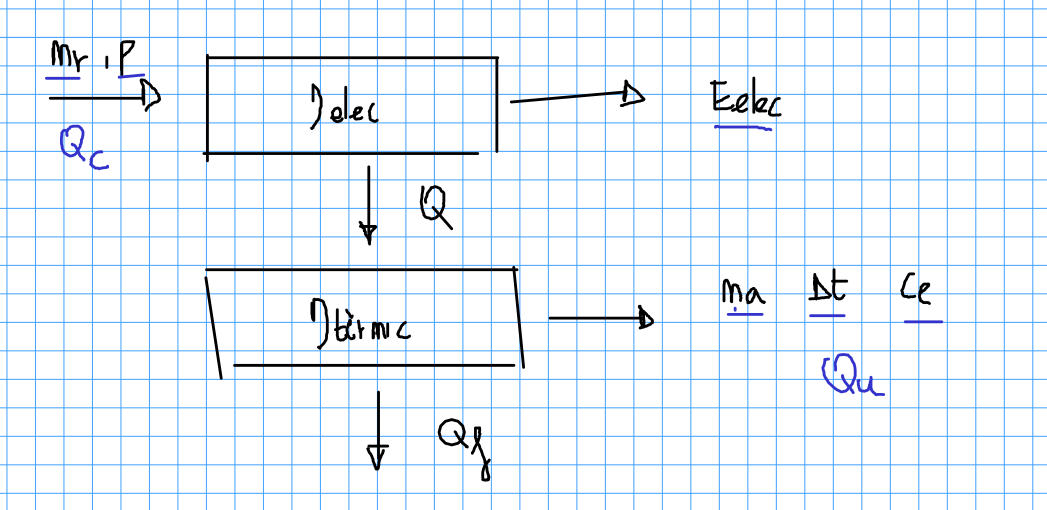 Mr , P
Qc
ηelec
Eelec
Q
ηtèrmic
ma Δt Ce
Qu
Qf